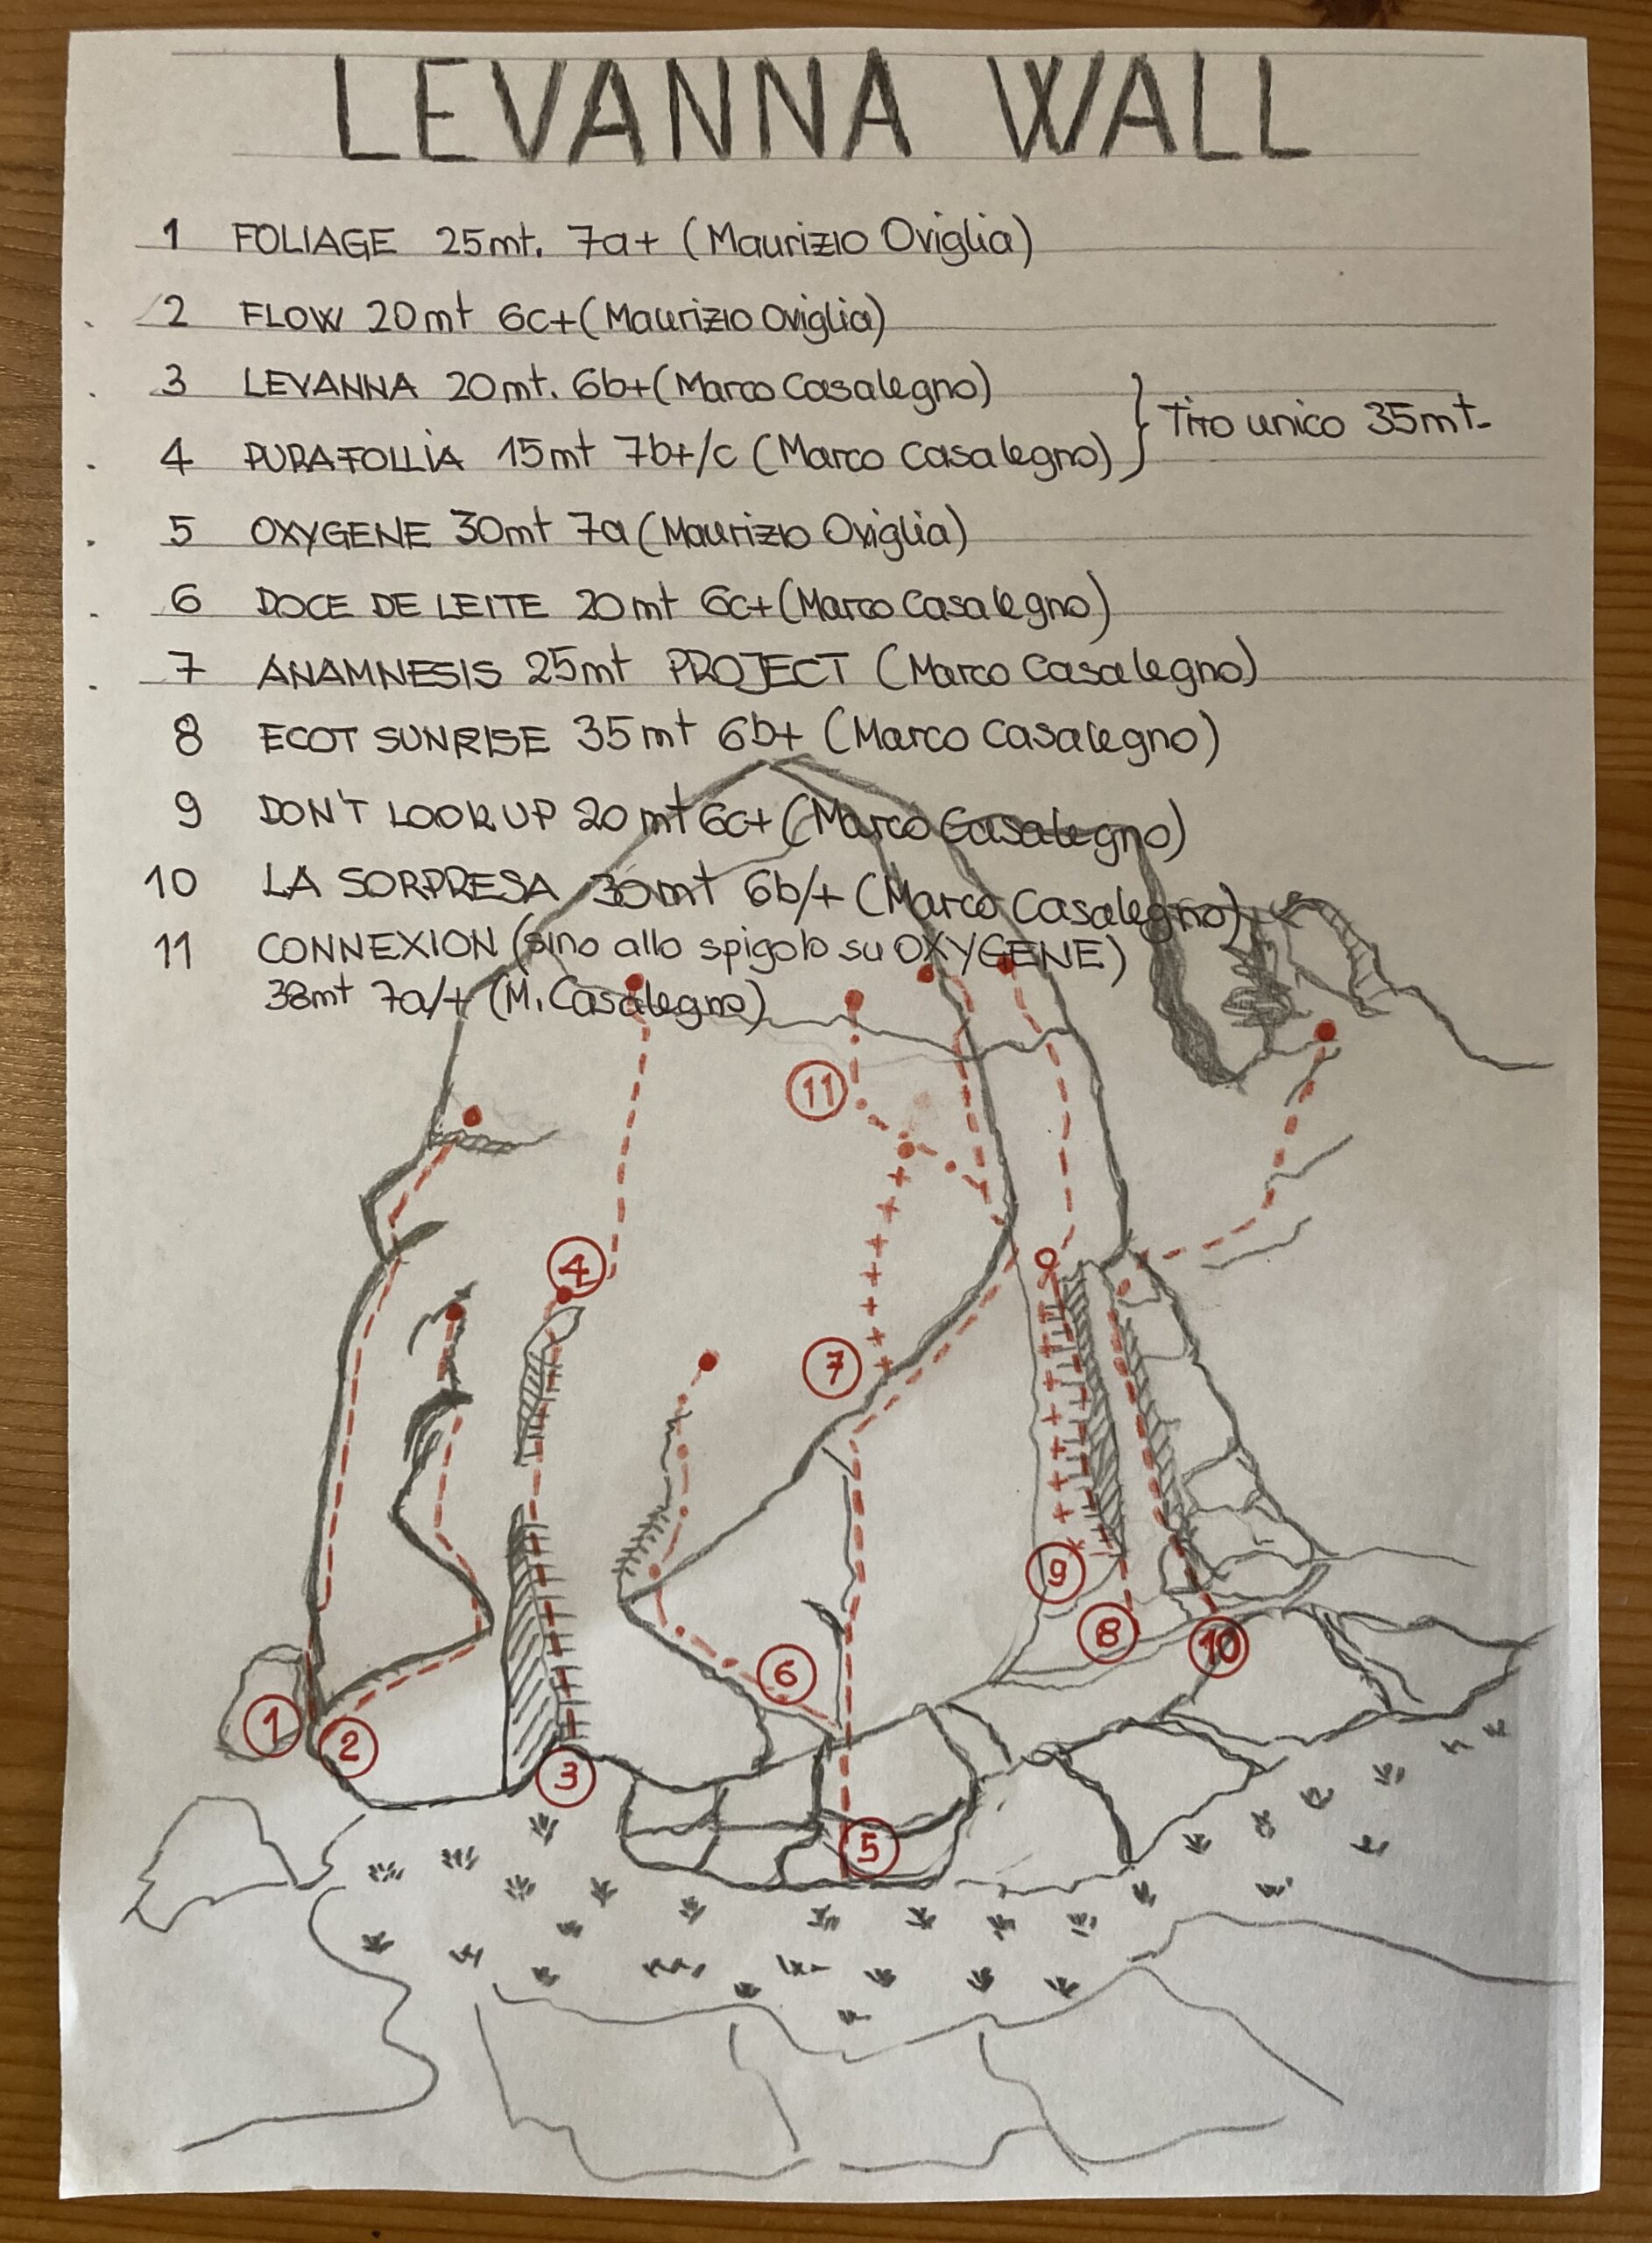 LEVANNA WALL
1 FOLIAGE 25mt. 7a+ (Maurizio Oviglia)
2 FLOW 20mt 6c+ (Maurizio Oviglia)
3 LEVANNA 20mt. 6b+ (Marco Casalegno)
4 PURAFOLLIA 15mt 7b+/c (Marco Casalegno)
} Tiro unico 35mt.
5 OXYGENE 30mt 7a (Maurizio Oviglia)
6 DOCE DE LEITE 20mt 6c+ (Marco Casalegno)
7 ANAMNESIS 25mt PROJECT (Marco Casalegno)
8 ECOT SUNRISE 35mt 6b+ (Marco Casalegno)
9 DON'T LOOK UP 20mt 6c+ (Marco Casalegno)
10 LA SORPRESA 30mt 6b/+ (Marco Casalegno)
11 CONNEXION (sino allo spigolo su OXYGENE)
38mt 7a/+ (M. Casalegno)
11
4
7
9
8
10
6
1
2
3
5